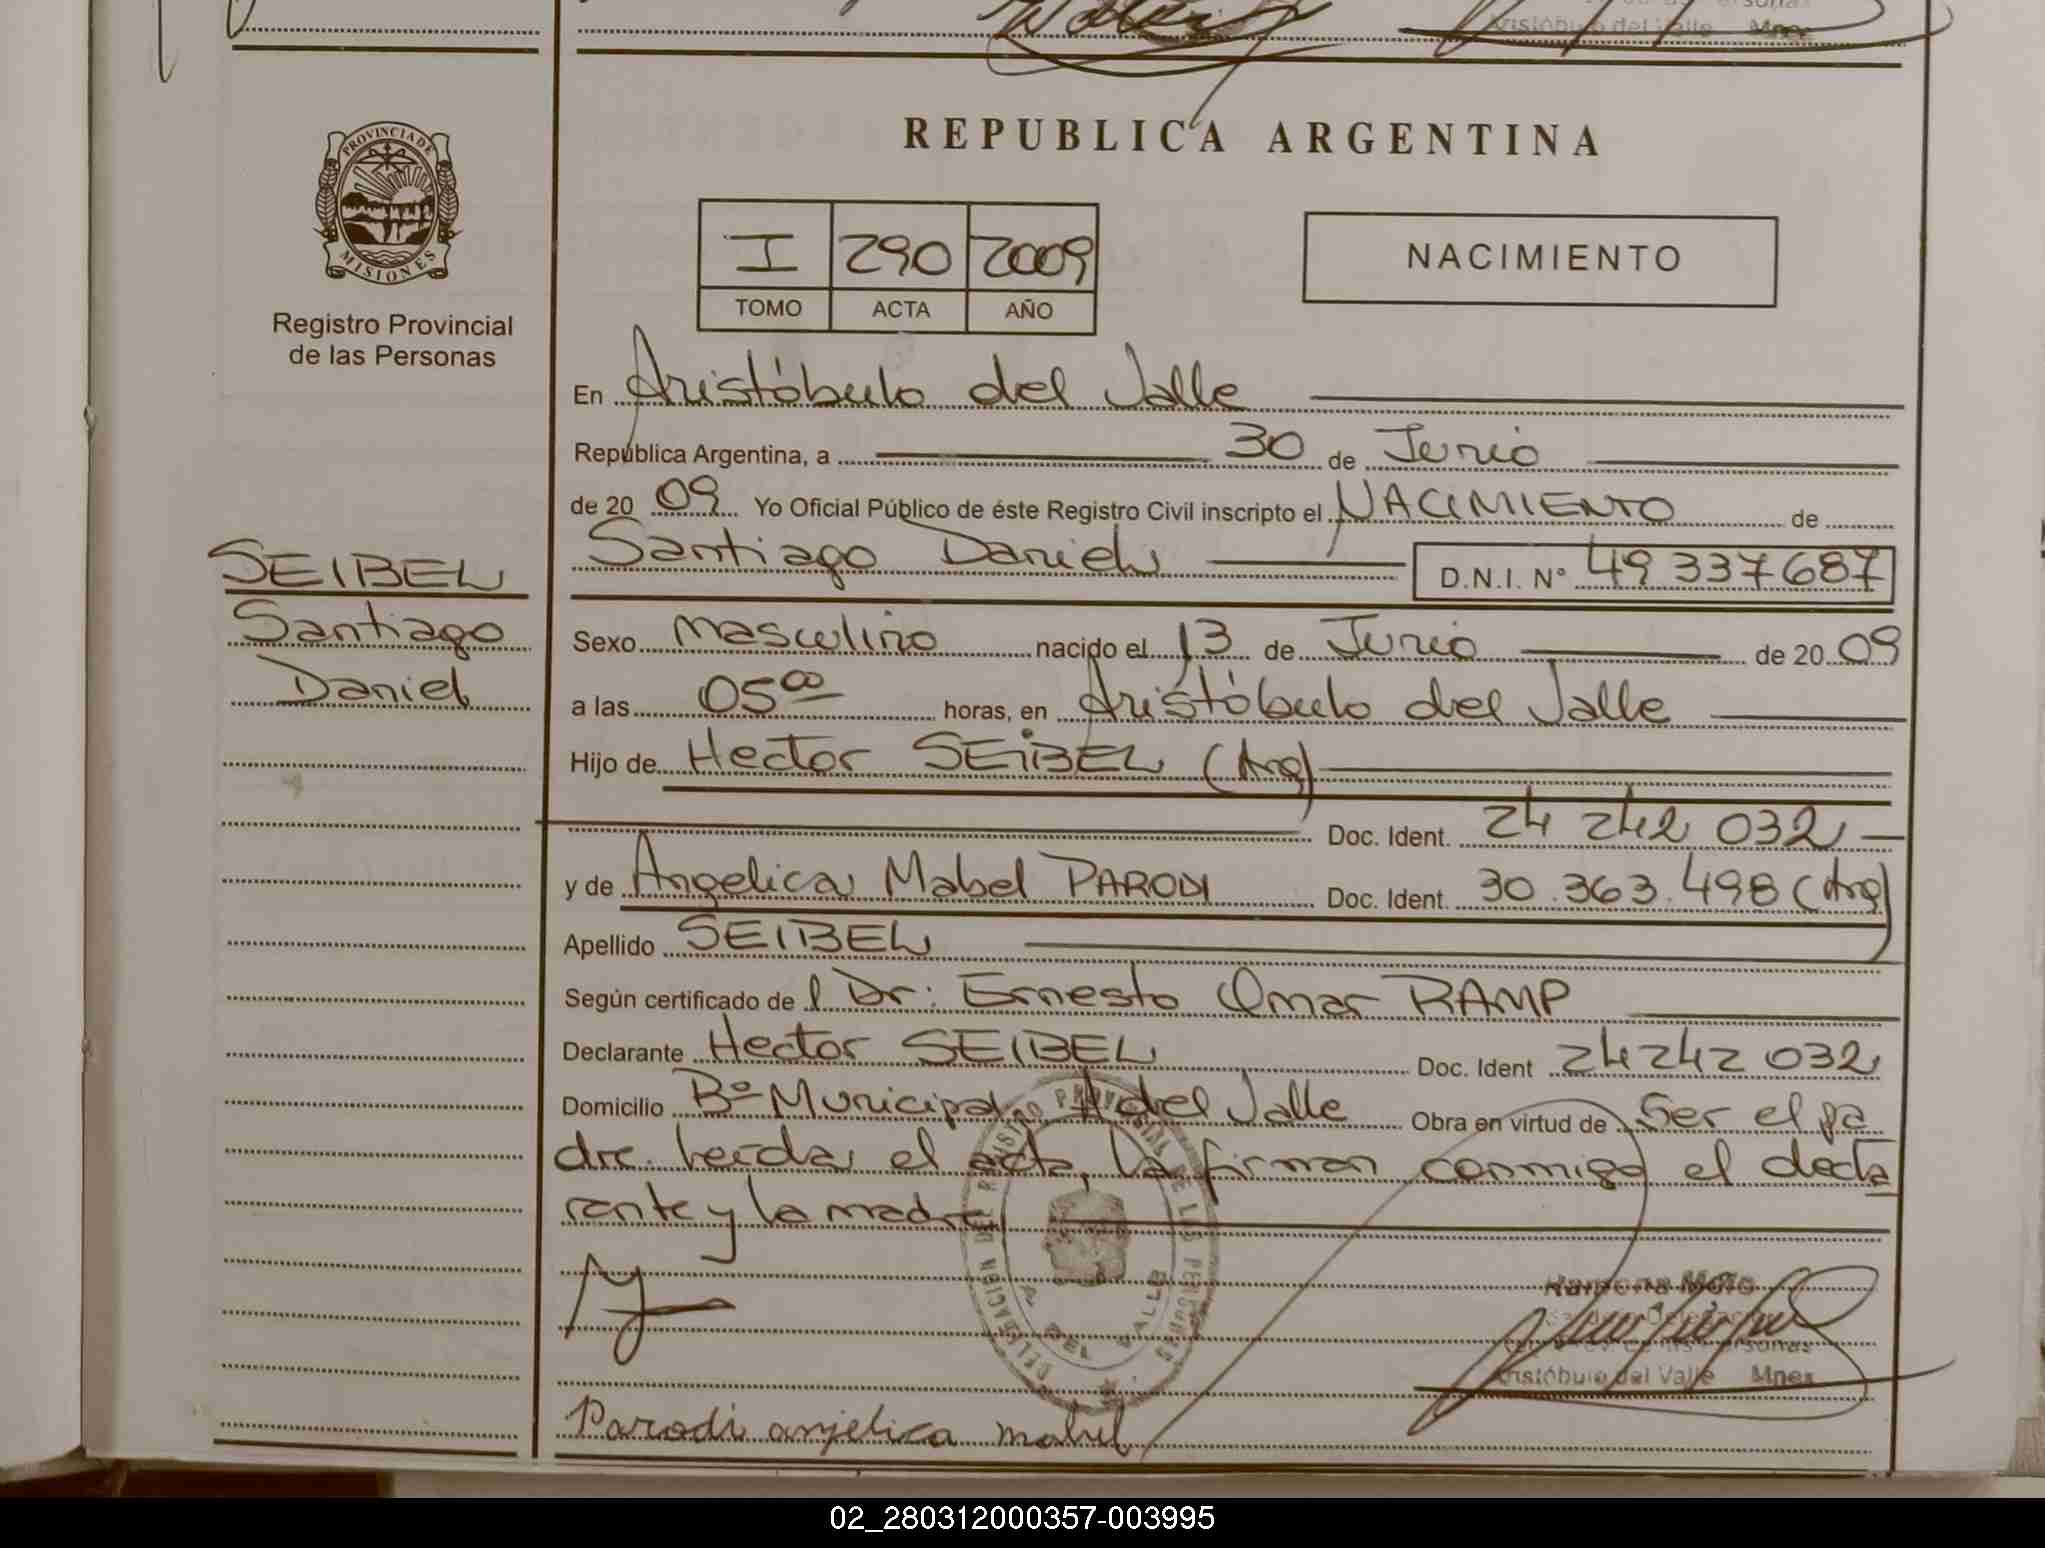 Aristóbulo del Valle Mnes
PROVINCIA DE
MISIONES
Registro Provincial
de las Personas
REPUBLICA ARGENTINA
I 290 2009
TOMO ACTA AÑO
NACIMIENTO
En Aristóbulo del Valle
República Argentina, a 30 de Junio
de 20 09 Yo Oficial Público de éste Registro Civil inscripto el NACIMIENTO de
Santiago Daniel D.N.I. N° 49 337 687
SEIBEL
Santiago
Daniel
Sexo masculino nacido el 13 de Junio de 20 09
a las 05⁰⁰ horas, en Aristóbulo del Valle
Hijo de Hector SEIBEL (Arg)
Doc. Ident. 24 242 032
y de Angelica Mabel PARODI Doc. Ident. 30.363.498 (Arg)
Apellido SEIBEL
Según certificado de l Dr: Ernesto Omar RAMP
Declarante Hector SEIBEL Doc. Ident 24242 032
Domicilio Bº Municipal A del Valle Obra en virtud de Ser el pa
dre. Leida el acta, la firman conmigo el decla
rante y la madre
Aristóbulo del Valle Mnes
Parodi anjelica mabel
02_280312000357-003995